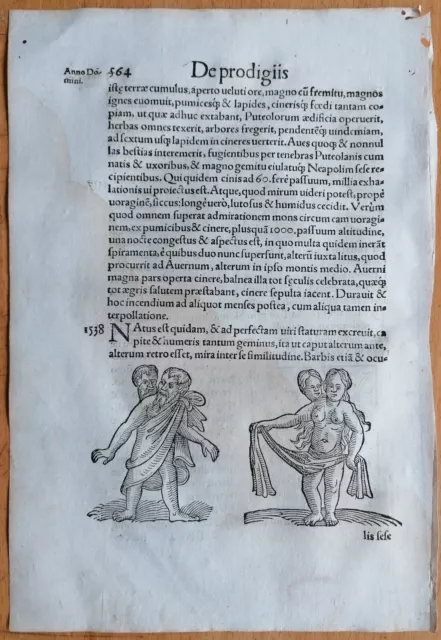 Anno Do- 564 De prodigiis
mini.
istę terræ cumulus, aperto ueluti ore, magno cū fremitu, magnos
ignes euomuit, pumicesq; & lapides, cinerisq; fœdi tantam co-
piam, ut quæ adhuc extabant, Puteolorum ædificia operuerit,
herbas omnes texerit, arbores fregerit, pendentẽq; uindemiam,
ad sextum usq; lapidem in cineres uerterit. Aues quoq; & nonnul
las bestias interemerit, fugientibus per tenebras Puteolanis cum
natis & uxoribus, & magno gemitu eiulatuq; Neapolim sese re-
cipientibus. Qui quidem cinis ad 60. ferè passuum, millia exha-
lationis ui proiectus est. Atque, quod mirum uideri potest, propè
uoraginē, siccus: longè uerò, lutosus & humidus cecidit. Verùm
quod omnem superat admirationem mons circum eam uoragi-
nem, ex pumicibus & cinere, plusquā 1000. passuum altitudine,
una nocte congestus & aspectus est, in quo multa quidem inerāt
spiramenta, è quibus duo nunc supersunt, alterū iuxta litus, quod
procurrit ad Auernum, alterum in ipso montis medio. Auerni
magna pars operta cinere, balnea illa tot seculis celebrata, quæq́;
tot ægris salutem præstabant, cinere sepulta iacent. Durauit &
hoc incendium ad aliquot menses postea, cum aliqua tamen in-
terpollatione.
1538 NAtus est quidam, & ad perfectam uiri staturam excreuit, ca-
pite & humeris tantum geminus, ita ut caput alterum ante,
alterum retro esset, mira inter se similitudine. Barbis etiā & ocu-
lis sese